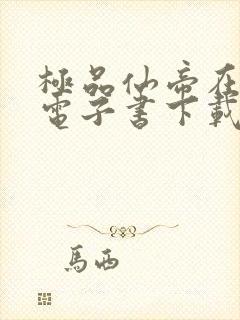 極品仙帝在
電子書下載
馬西